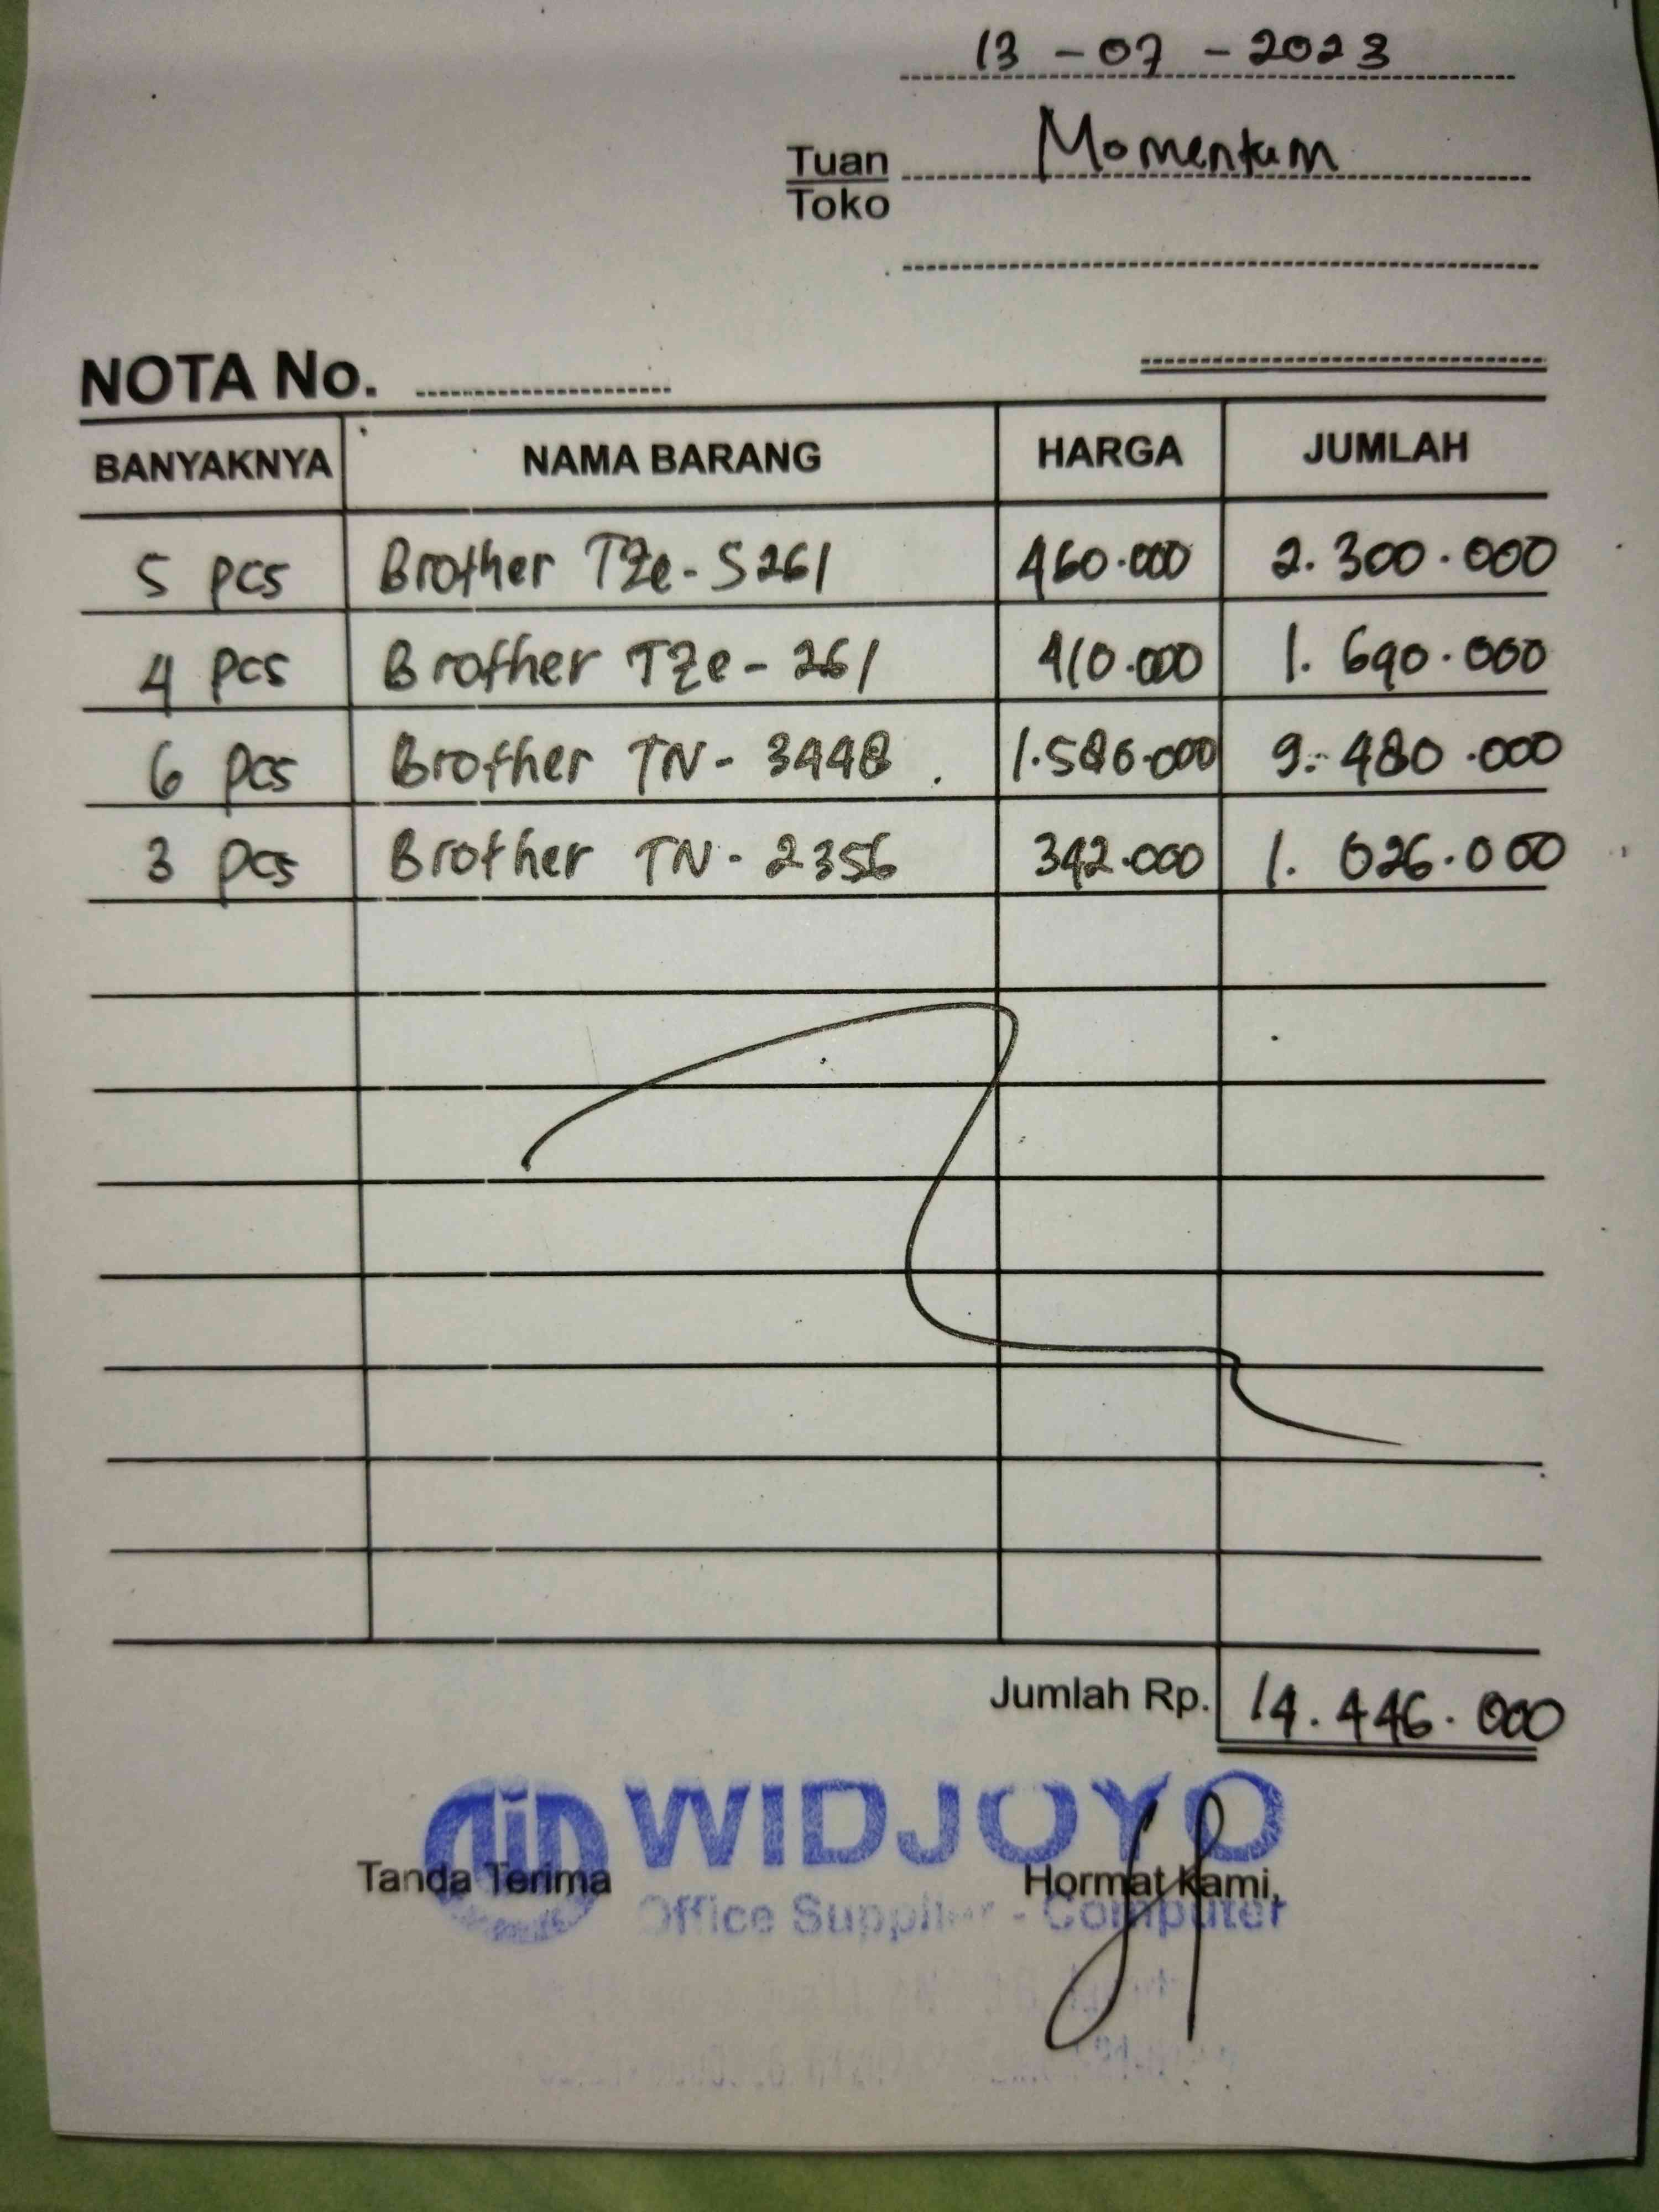 13 - 07 - 2023
Tuan Momentum
Toko
NOTA No.
BANYAKNYA NAMA BARANG HARGA JUMLAH
5 pcs Brother TZe-S261 460.000 2.300.000
4 pcs Brother TZe-261 410.000 1.640.000
6 pcs Brother TN-3448 1.580.000 9.480.000
3 pcs Brother TN-2356 342.000 1.026.000
Jumlah Rp. 14.446.000
WIDJOYO
Tanda Terima Hormat Kami,
Office Supplier - Computer